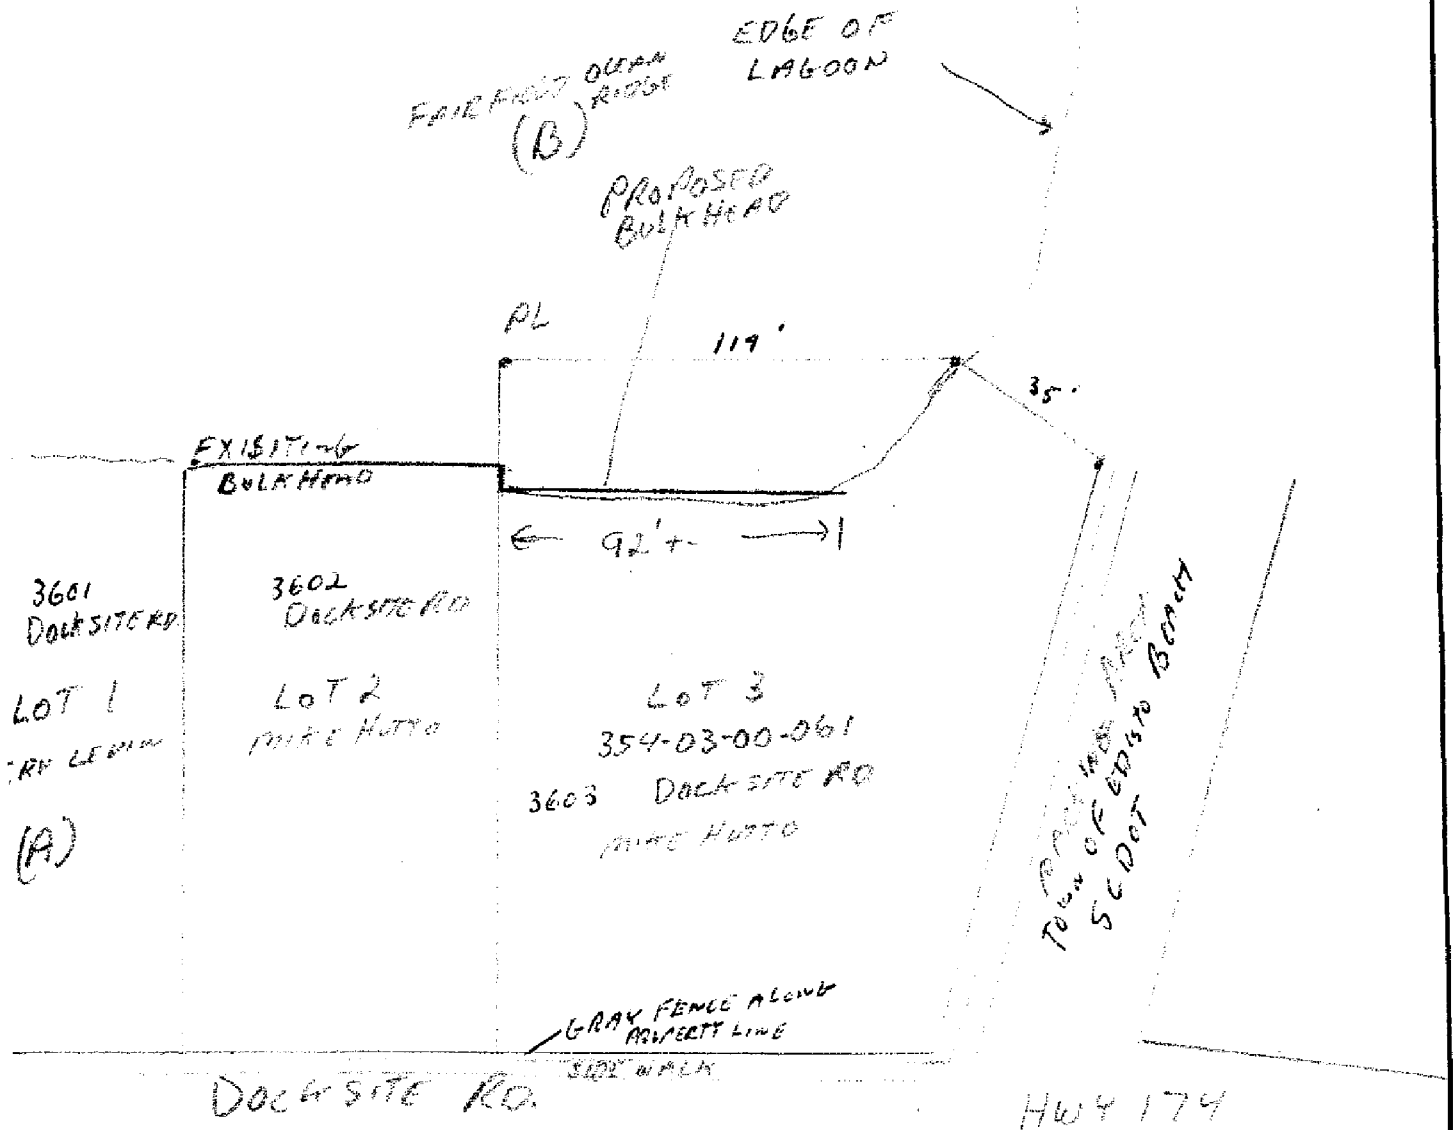 EDGE OF
LAGOON
FAIRFIELD OCEAN
RIDGE
(B)
PROPOSED
BULKHEAD
PL
119'
35'
EXISITING
BULKHEAD
92'+-
3601
DOCKSITE RD.
3602
DOCKSITE RD
LOT 1
LOT 2
MIKE HUTTO
LOT 3
354-03-00-061
3603 DOCKSITE RD
MIKE HUTTO
(A)
PARKING AREA
TOWN OF EDISTO BEACH
SCDOT
GRAY FENCE ALONG
PROPERTY LINE
SIDE WALK
DOCKSITE RD.
HWY 174